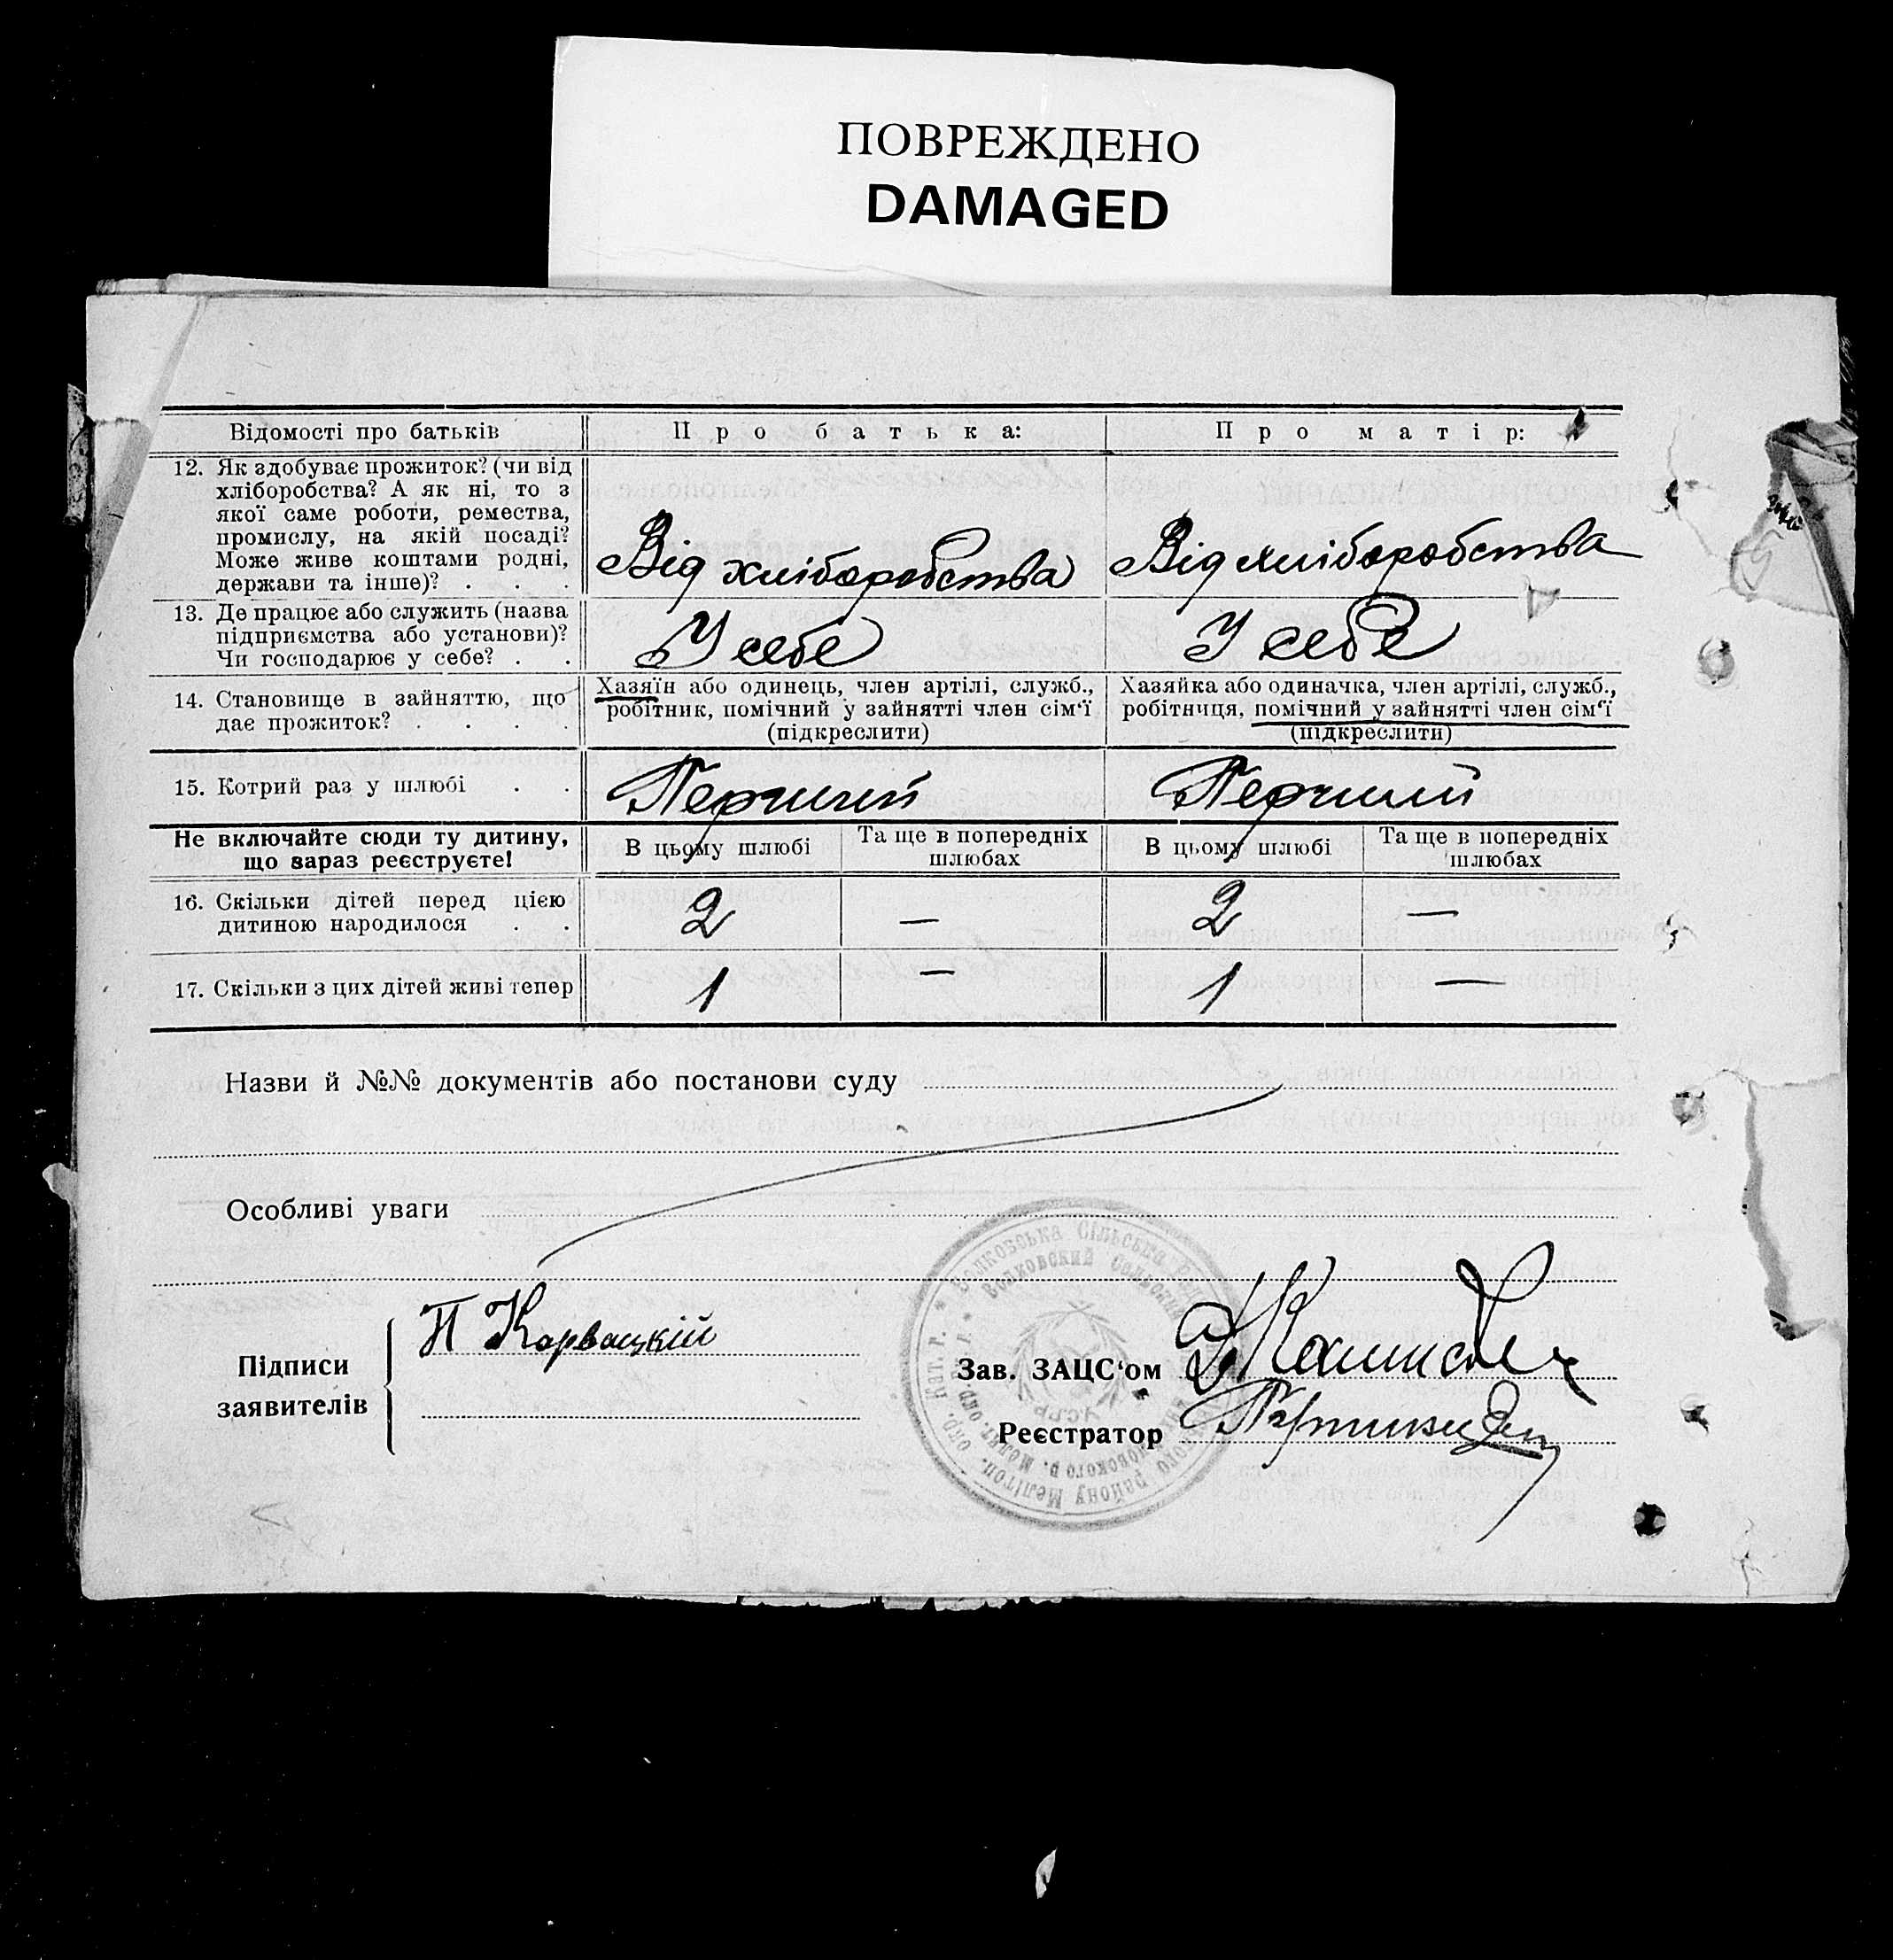 ПОВРЕЖДЕНО
DAMAGED
Відомості про батьків
Про батька:
Про матір:
12. Як здобуває прожиток? (чи від
хліборобства? А як ні, то з
якої саме роботи, ремества,
промислу, на якій посаді?
Може живе коштами родні,
держави та інше)? . . .
Від хліборобства
Від хліборобства
13. Де працює або служить (назва
підприємства або установи)?
Чи господарює у себе? . .
У себе
У себе
14. Становище в зайняттю, що
дає прожиток? . . . .
Хазяїн або одинець, член артілі, служб.,
робітник, помічний у зайнятті член сім'ї
(підкреслити)
Хазяйка або одиначка, член артілі, служб.,
робітниця, помічний у зайнятті член сім'ї
(підкреслити)
15. Котрий раз у шлюбі . .
Перший
Перший
Не включайте сюди ту дитину,
що зараз реєструєте!
В цьому шлюбі
Та ще в попередніх
шлюбах
В цьому шлюбі
Та ще в попередніх
шлюбах
16. Скільки дітей перед цією
дитиною народилося . .
2
—
2
—
17. Скільки з цих дітей живі тепер
1
—
1
—
Назви й №№ документів або постанови суду
Особливі уваги
Підписи
заявителів
П Карвацкій
Зав. ЗАЦС'ом
Реєстратор
Волковська Сільська
Волковский Сельский
району Мелітоп. окр. Кат. г.
УСРР